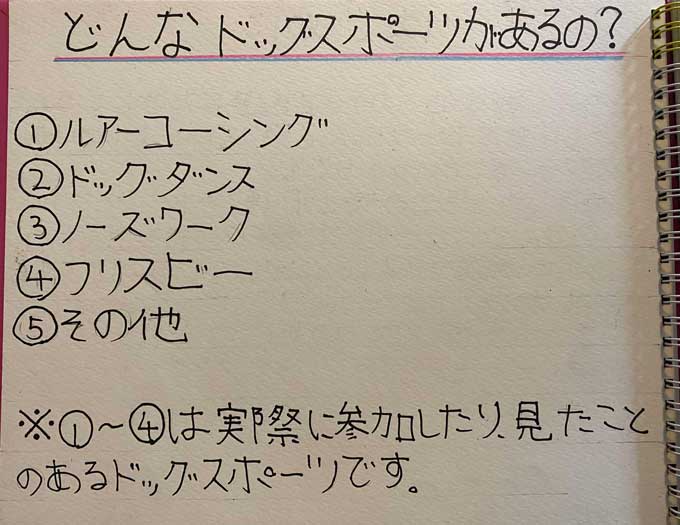 どんなドッグスポーツがあるの?
①ルアーコーシング
②ドッグダンス
③ノーズワーク
④フリスビー
⑤その他
※①～④は実際に参加したり、見たこと
のあるドッグスポーツです。